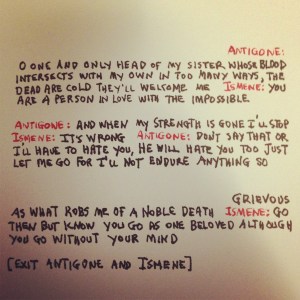 ANTIGONE:
O ONE AND ONLY HEAD OF MY SISTER WHOSE BLOOD
INTERSECTS WITH MY OWN IN TOO MANY WAYS, THE
DEAD ARE COLD THEY'LL WELCOME ME ISMENE: YOU
ARE A PERSON IN LOVE WITH THE IMPOSSIBLE
ANTIGONE: AND WHEN MY STRENGTH IS GONE I'LL STOP
ISMENE: IT'S WRONG ANTIGONE: DON'T SAY THAT OR
I'LL HAVE TO HATE YOU, HE WILL HATE YOU TOO JUST
LET ME GO FOR I'LL NOT ENDURE ANYTHING SO
GRIEVOUS
AS WHAT ROBS ME OF A NOBLE DEATH ISMENE: GO
THEN BUT KNOW YOU GO AS ONE BELOVED ALTHOUGH
YOU GO WITHOUT YOUR MIND
[EXIT ANTIGONE AND ISMENE]